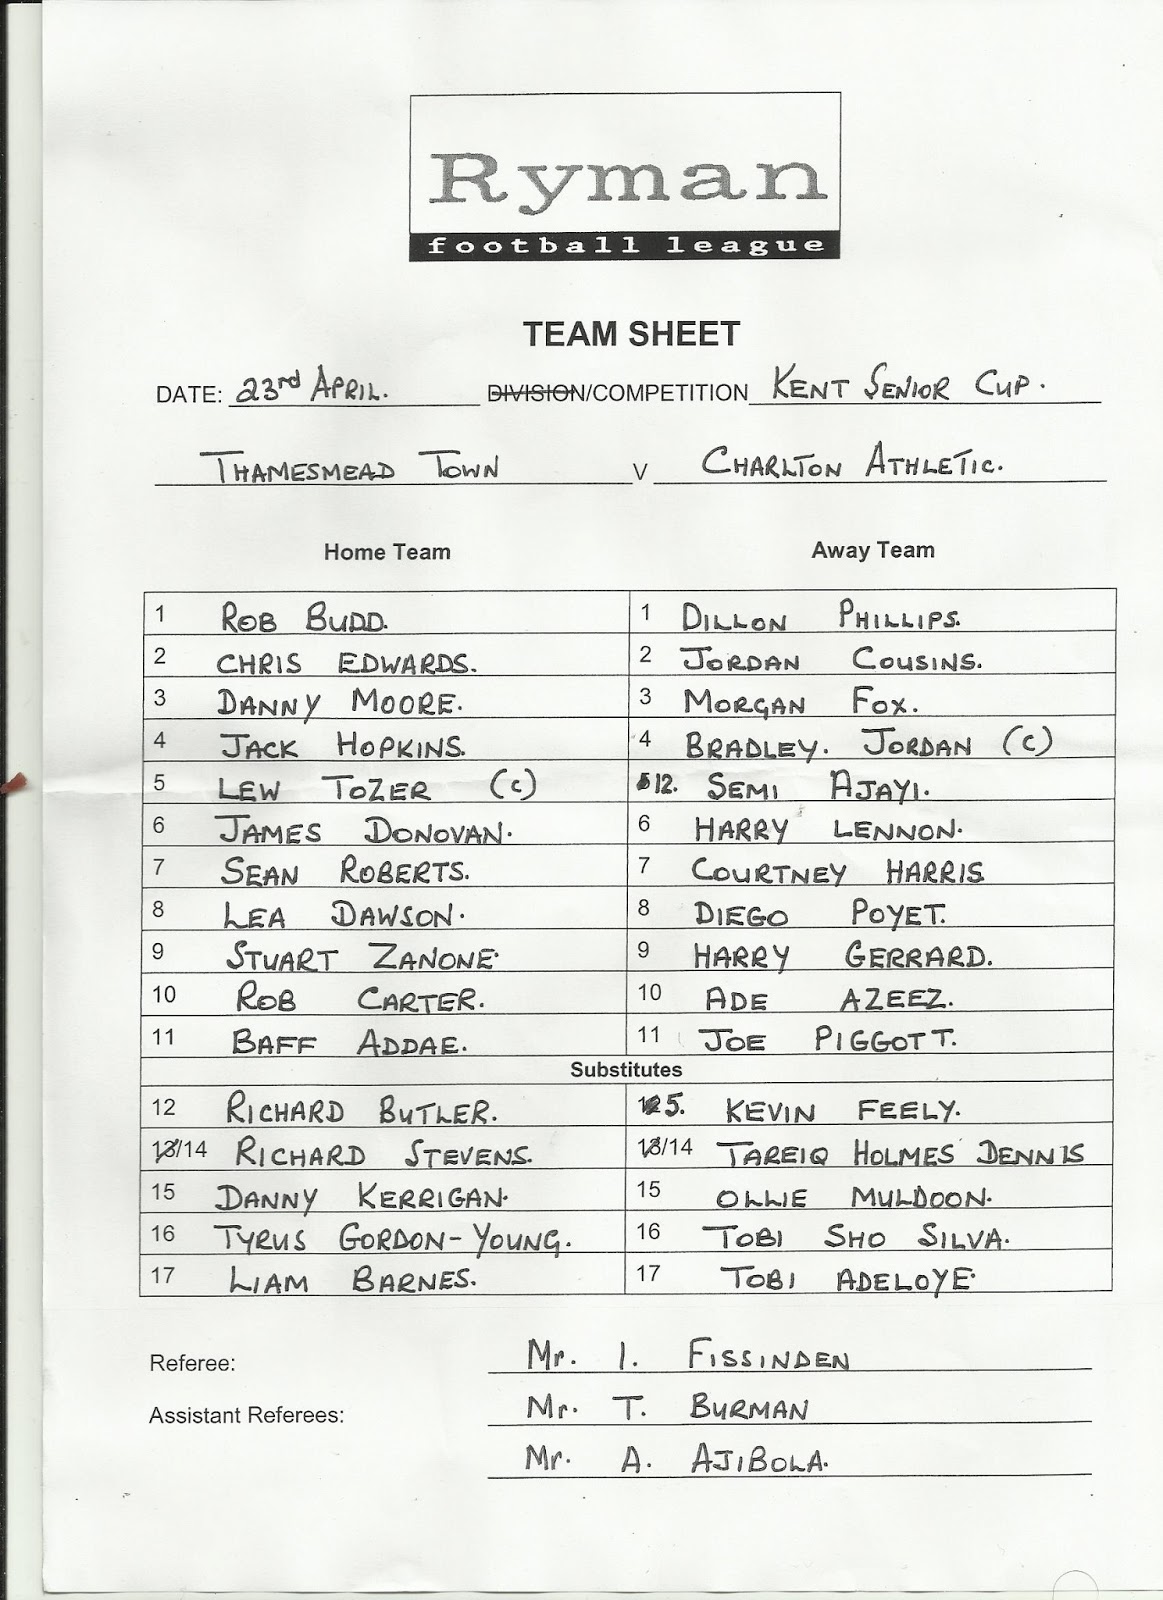 Ryman
football league
TEAM SHEET
DATE: 23rd APRIL. DIVISION/COMPETITION KENT SENIOR CUP.
THAMESMEAD TOWN V CHARLTON ATHLETIC.
Home Team Away Team
1 ROB BUDD. 1 DILLON PHILLIPS.
2 CHRIS EDWARDS. 2 JORDAN COUSINS.
3 DANNY MOORE. 3 MORGAN FOX.
4 JACK HOPKINS. 4 BRADLEY. JORDAN (C)
5 LEW TOZER (C) 12. SEMI AJAYI.
6 JAMES DONOVAN. 6 HARRY LENNON.
7 SEAN ROBERTS. 7 COURTNEY HARRIS
8 LEA DAWSON. 8 DIEGO POYET.
9 STUART ZANONE. 9 HARRY GERRARD.
10 ROB CARTER. 10 ADE AZEEZ.
11 BAFF ADDAE. 11 JOE PIGGOTT.
Substitutes
12 RICHARD BUTLER. 5. KEVIN FEELY.
13/14 RICHARD STEVENS. 13/14 TAREIQ HOLMES DENNIS
15 DANNY KERRIGAN. 15 OLLIE MULDOON.
16 TYRUS GORDON-YOUNG. 16 TOBI SHO SILVA.
17 LIAM BARNES. 17 TOBI ADELOYE.
Referee: Mr. I. FISSINDEN
Assistant Referees: Mr. T. BURMAN
Mr. A. AJIBOLA.